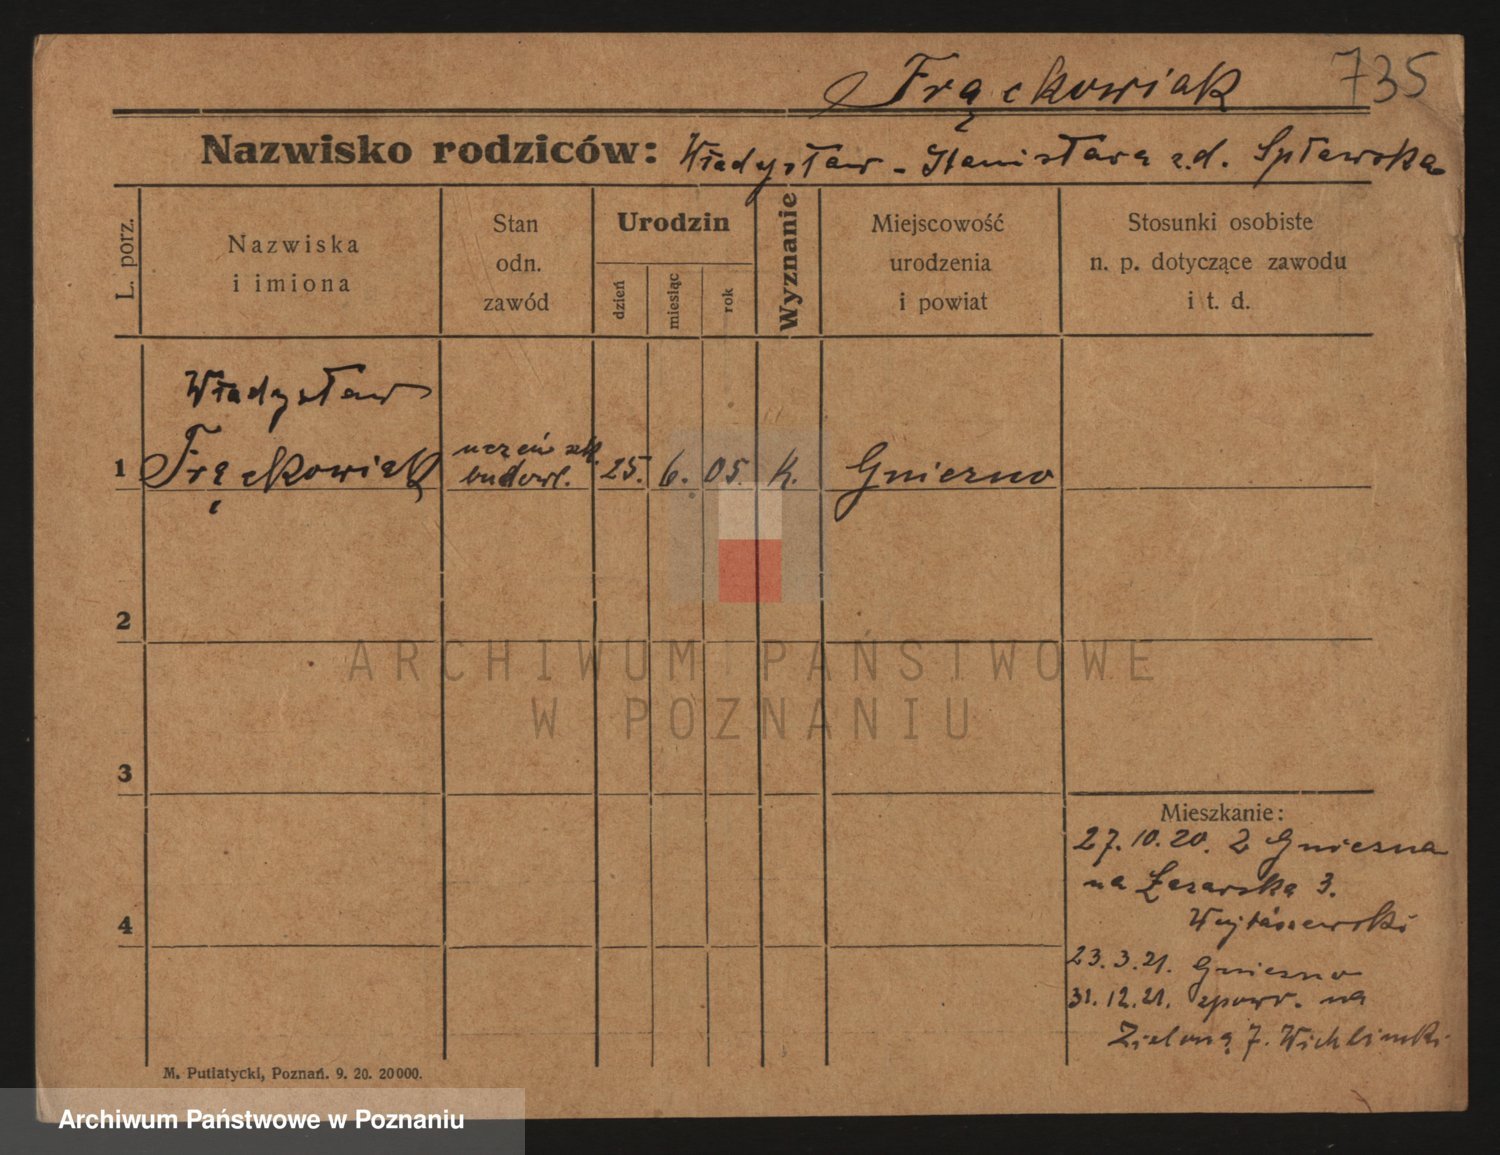 Frąckowiak 735
Nazwisko rodziców: Władysław - Stanisława z.d. Spławska
L. porz.
Nazwiska
i imiona
Stan
odn.
zawód
Urodzin
dzień
miesiąc
rok
Wyznanie
Miejscowość
urodzenia
i powiat
Stosunki osobiste
n. p. dotyczące zawodu
i t. d.
Władysław
1 Frąckowiak uczeń szk. 25. 6. 05. K. Gniezno
budowl.
2
3
4
Mieszkanie:
27.10.20. z Gniezna
na Łazarską 3.
23.3.21. Gniezno
31.12.21. zpowr. na
Zieloną 7.
M. Putiatycki, Poznań. 9. 20. 20000.
ARCHIWUM PAŃSTWOWE
W POZNANIU
Archiwum Państwowe w Poznaniu